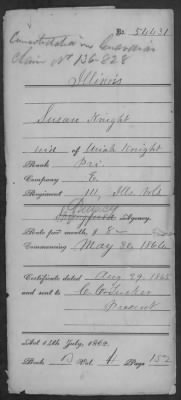 No. 54431
Consolidation in Guardian
Claim No 136-828
Illinois
Susan Knight
wid of Uriah Knight
Rank Pri.
Company E.
Regiment 111, Ills. Vols
Quincy
Springfield Agency.
Rate per month, $ 8-
Commencing May 26 1864
Certificate dated Aug 29. 1865
and sent to C. C. Tucker
Present
Act 14th July, 1862.
Book Vol. Page 152